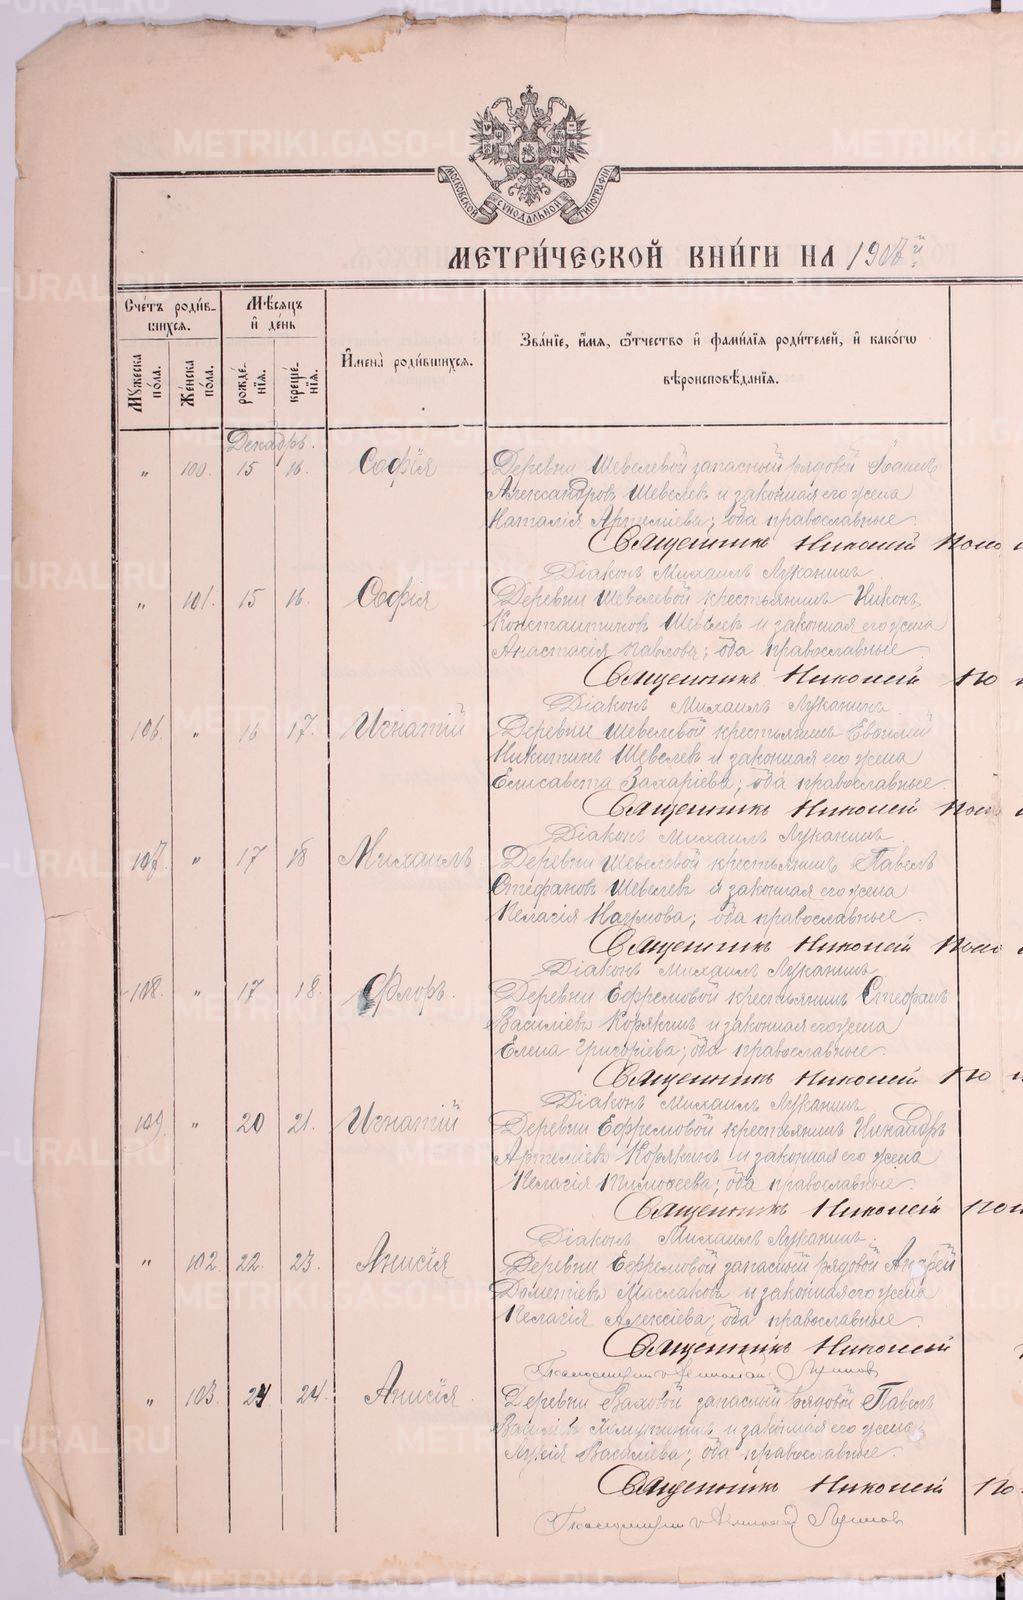 МОСКОВСКОЙ СѴНОДАЛЬНОЙ ТИПОГРАФІИ
МЕТРИ́ЧЕСКОЙ КНИ́ГИ НА 190
Сче́тъ роди́в-
шихся.
Мѣ́сяцъ
и҆ де́нь
Мꙋ́жеска по́ла.
Же́нска по́ла.
рожде́-
нїѧ.
креще́-
нїѧ.
И҆мена̀ роди́вшихся.
Зва́нїе, и҆́мѧ, ѻ҆́тчество и҆ фами́лїѧ роди́телей, и҆ како́гѡ
вѣроисповѣ́данїѧ.
Декабрь.
„ 100. 15 16. Софія Деревни Шевелевой запасный рядовой
Александровъ Шевелевъ и законная его жена
Наталія Артеміева; оба православные.
Священникъ Николай
Діаконъ Михаилъ Луканинъ
„ 101. 15 16. Софія Деревни Шевелевой крестьянинъ Никонъ
Константиновъ Шевелевъ и законная его жена
Анастасія Павлова; оба православные.
Священникъ Николай
Діаконъ Михаилъ Луканинъ
106. „ 16 17. Игнатій Деревни Шевелевой крестьянинъ
Никитинъ Шевелевъ и законная его жена
Елисавета Захаріева; оба православные.
Священникъ Николай
Діаконъ Михаилъ Луканинъ
107. „ 17 18 Михаилъ Деревни Шевелевой крестьянинъ Павелъ
Стефановъ Шевелевъ и законная его жена
Пелагія Наумова; оба православные.
Священникъ Николай
Діаконъ Михаилъ Луканинъ
108. „ 17 18. Флоръ. Деревни Ефремовой крестьянинъ Стефанъ
Василіевъ Корякинъ и законная его жена
Елена Григоріева; оба православные.
Священникъ Николай
Діаконъ Михаилъ Луканинъ
109. „ 20 21. Игнатій Деревни Ефремовой крестьянинъ Никандръ
Артеміевъ Корякинъ и законная его жена
Пелагія Тимоѳеева; оба православные.
Священникъ Николай
Діаконъ Михаилъ Луканинъ.
„ 102. 22. 23. Анисія Деревни Ефремовой запасный рядовой Андрей
Дометіевъ Маслаковъ и законная его жена
Пелагія Алексіева; оба православные.
Священникъ Николай
„ 103. 24. Анисія Деревни запасный рядовой Павелъ
и законная его жена
Василіева; оба православные.
Священникъ Николай
METRIKI.GASO-URAL.RU